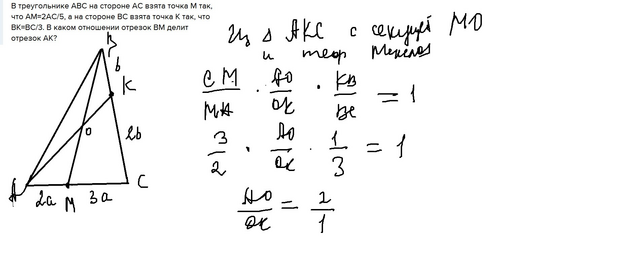 В треугольнике ABC на стороне AC взята точка M так,
что AM=2AC/5, а на стороне BC взята точка K так, что
BK=BC/3. В каком отношении отрезок BM делит
отрезок AK?
B
b
K
O
2b
A
C
2a M 3a
Из Δ AKC с секущей MO
и теор Менелая
CM/MA · AO/OK · KB/BC = 1
3/2 · AO/OK · 1/3 = 1
AO/OK = 2/1